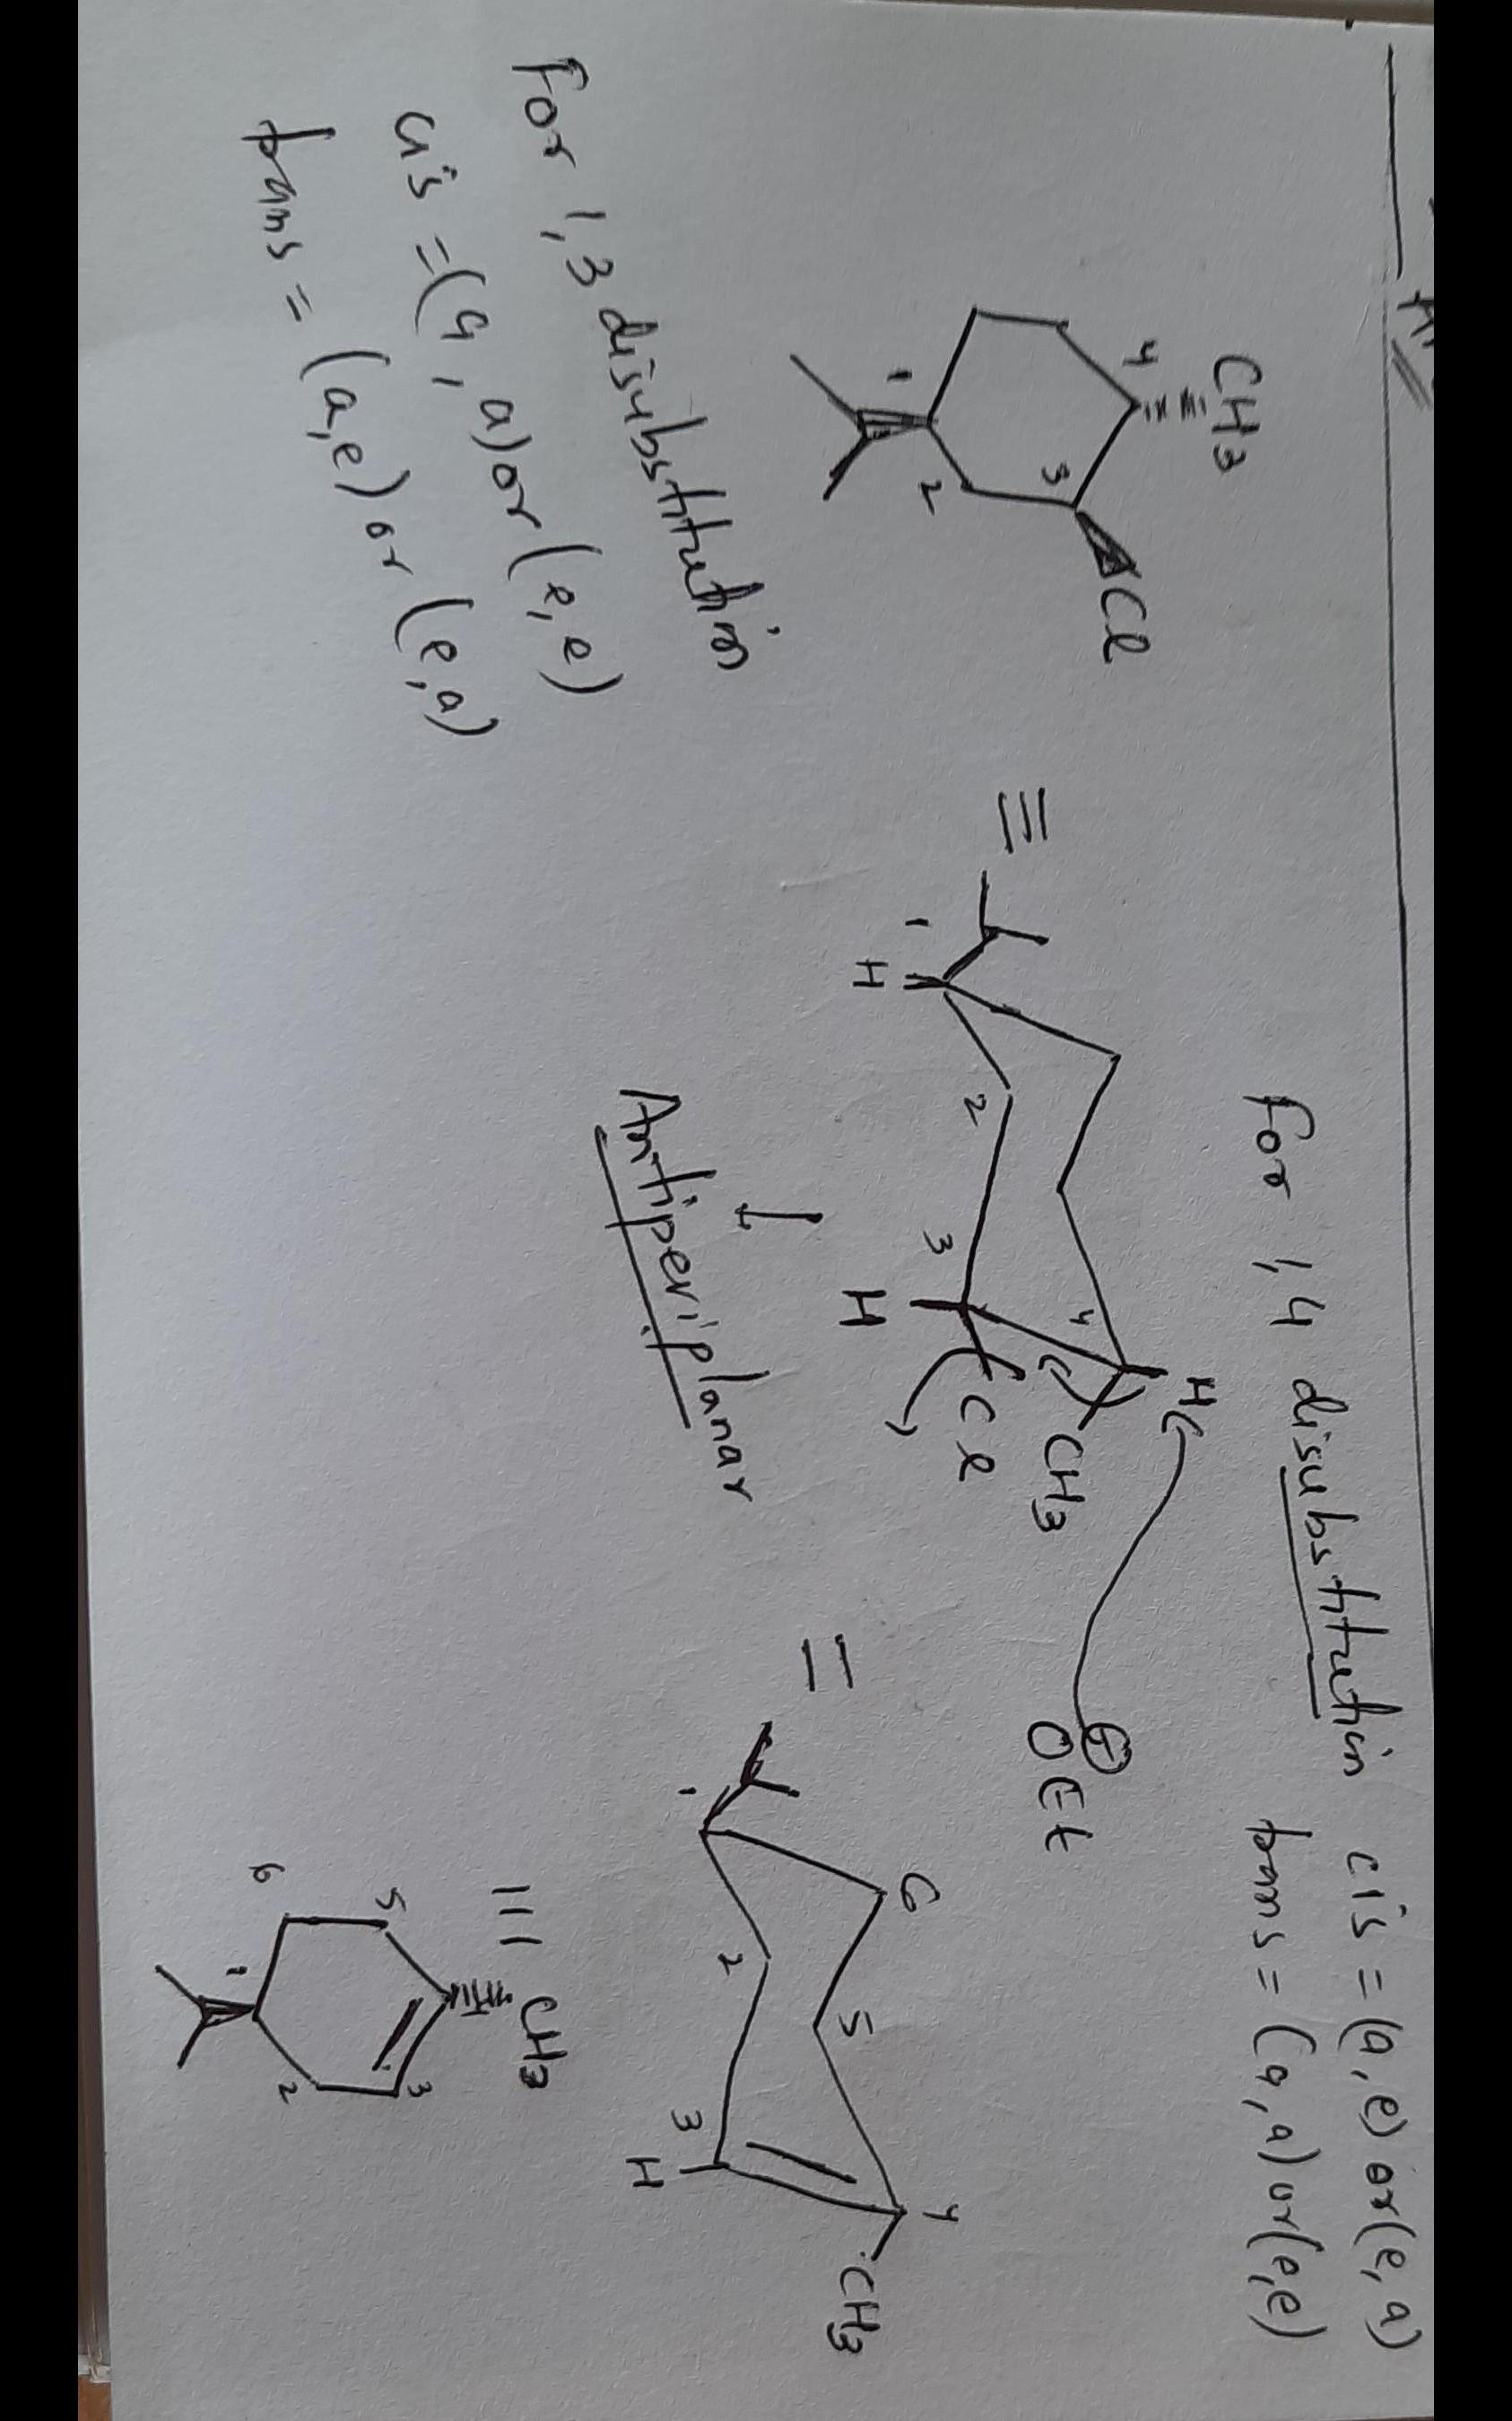 For 1,4 disubstitution cis = (a,e) or (e,a)
trans = (a,a) or (e,e)
CH3
4
3
Cl
1
2
≡
1
H
2
3
H
4
H
CH3
Cl
⊖
OEt
↓
Antiperiplanar
=
1
2
3
H
4
5
6
CH3
≡
CH3
1
2
3
5
6
For 1,3 disubstitution
cis = (a,a) or (e,e)
trans = (a,e) or (e,a)